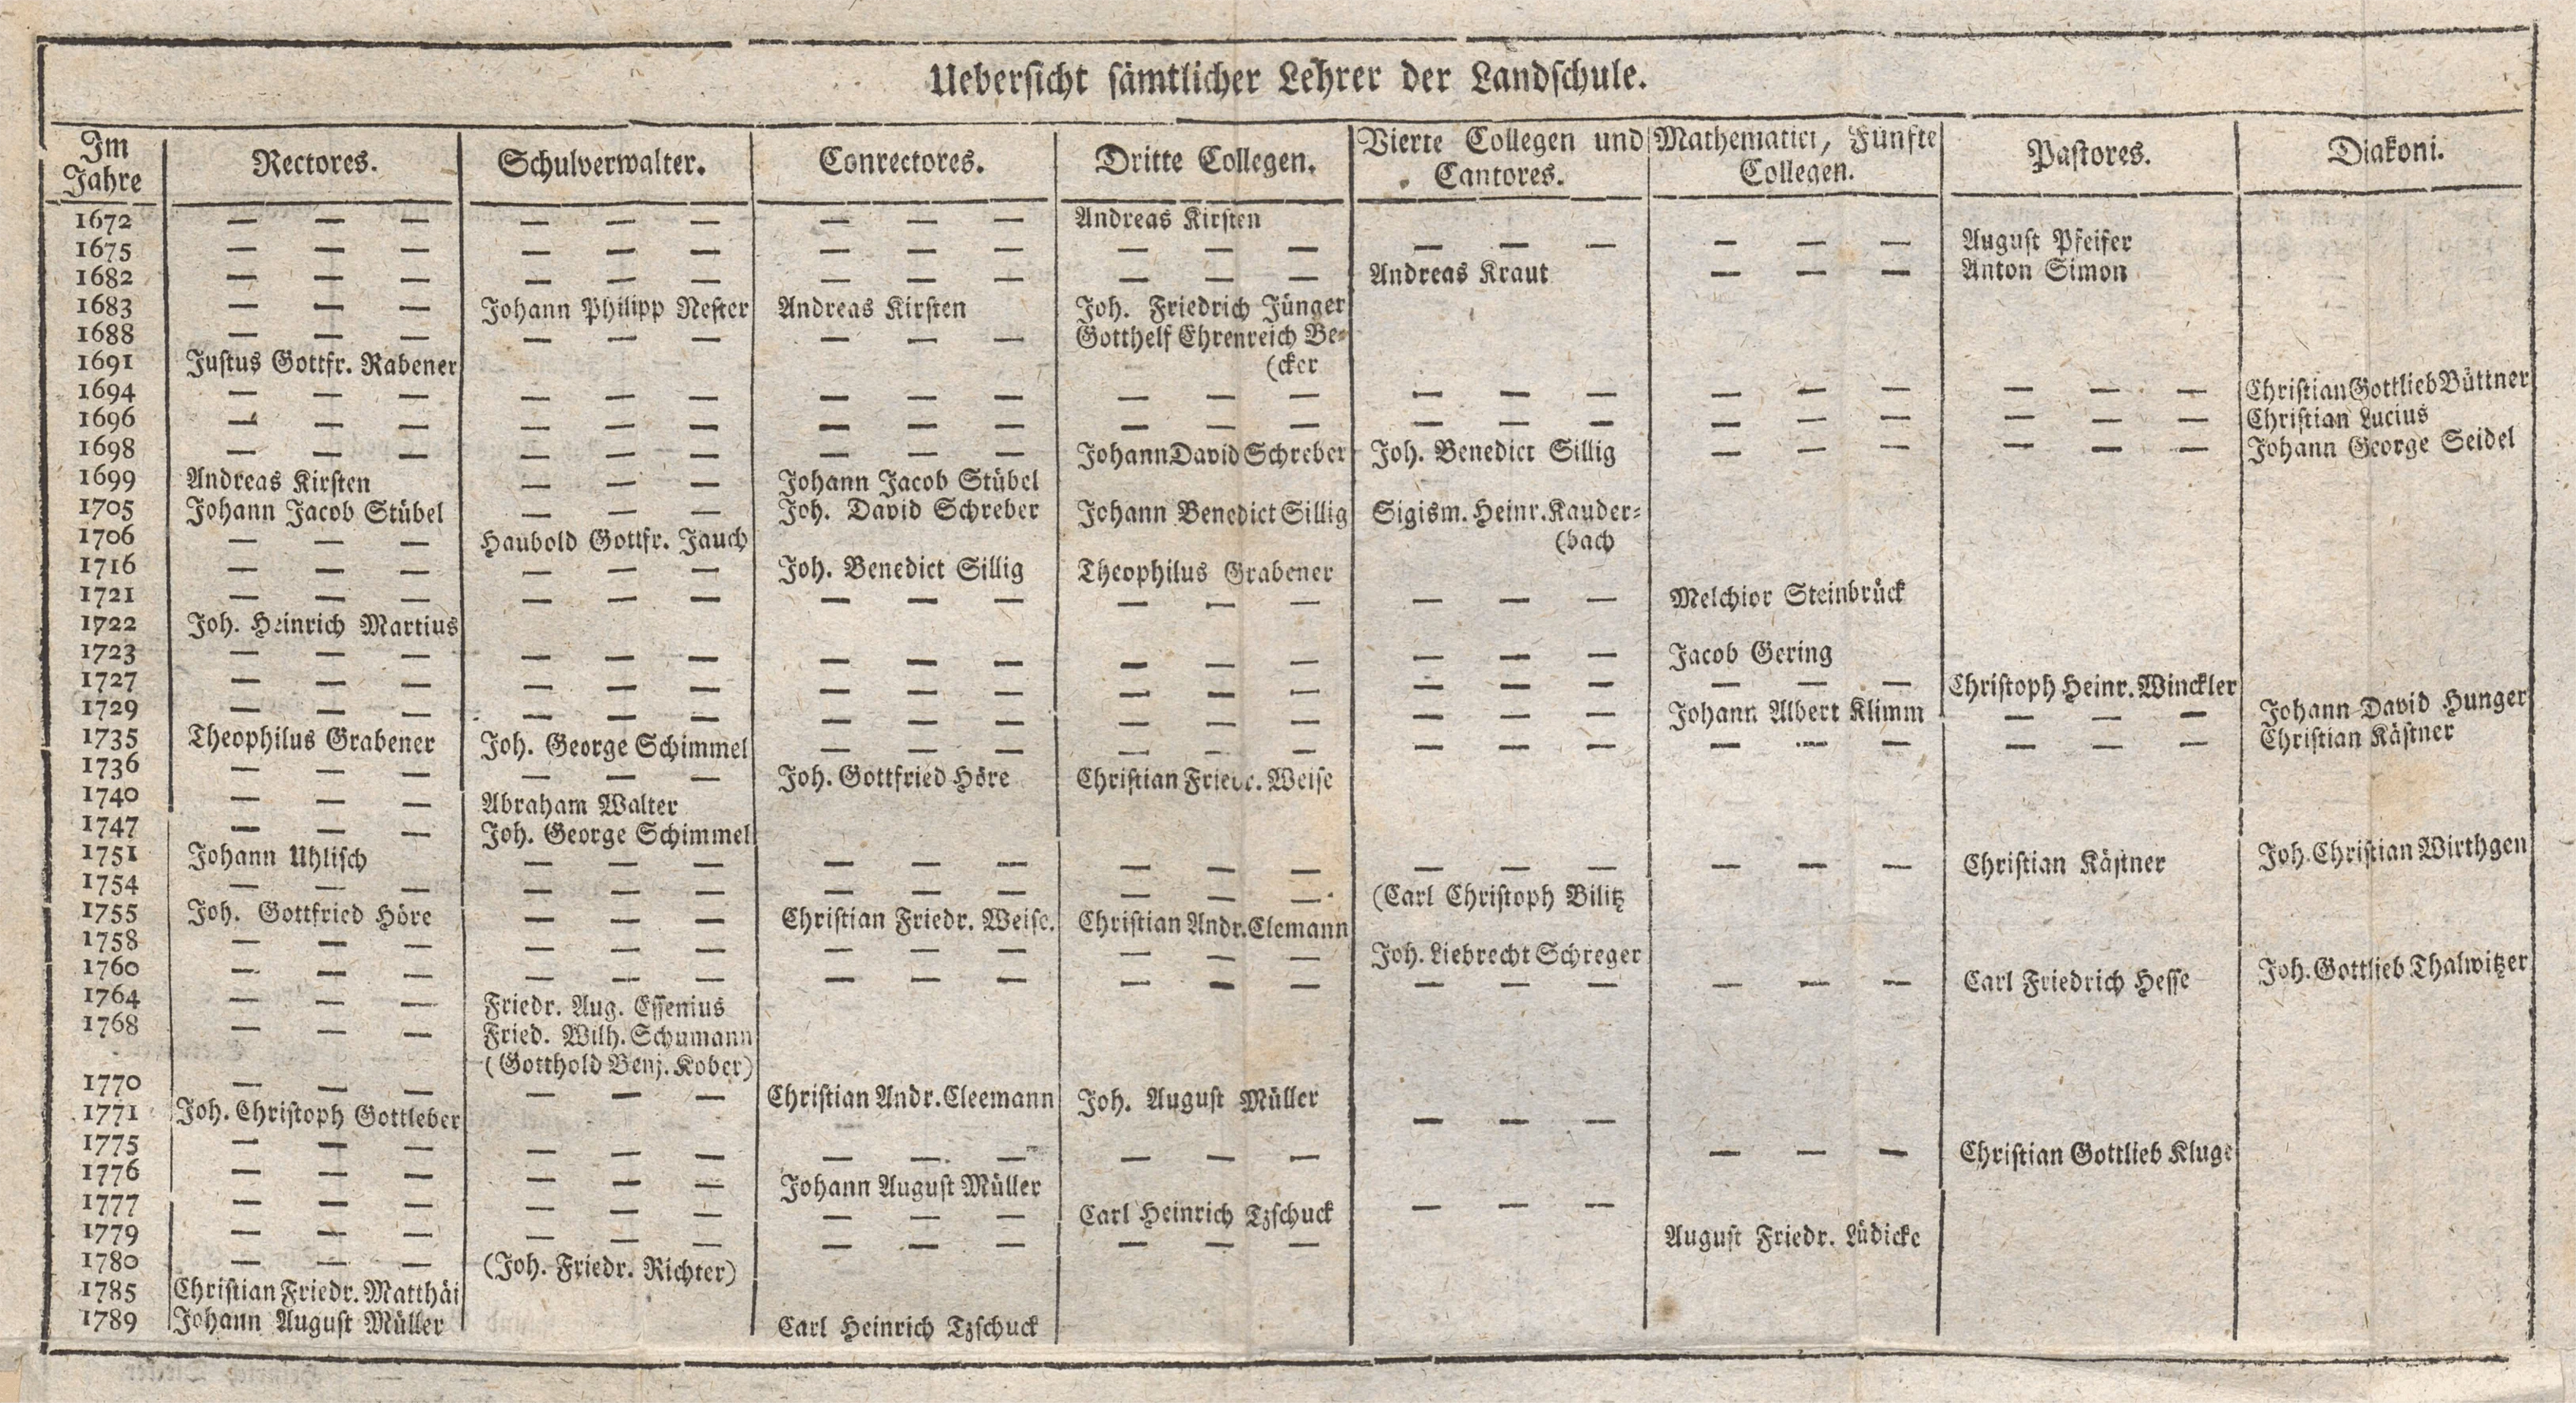 Uebersicht sämtlicher Lehrer der Landschule.
Im Jahre | Rectores. | Schulverwalter. | Conrectores. | Dritte Collegen. | Vierte Collegen und Cantores. | Mathematici, Fünfte Collegen. | Pastores. | Diakoni.
1672 — — — — — — — — — Andreas Kirsten
1675 — — — — — — — — — — — — — — — — — — August Pfeifer
1682 — — — — — — — — — — — — Andreas Kraut — — — Anton Simon
1683 — — — Johann Philipp Nester Andreas Kirsten Joh. Friedrich Jünger
1688 — — — — — — — — — Gotthelf Ehrenreich Be=
1691 Justus Gottfr. Rabener (cker
1694 — — — — — — — — — — — — — — — — — — — — — Christian Gottlieb Büttner
1696 — — — — — — — — — — — — — — — — — — — — — Christian Lucius
1698 — — — — — — — — — Johann David Schreber Joh. Benedict Sillig — — — — — — Johann George Seidel
1699 Andreas Kirsten — — — Johann Jacob Stübel
1705 Johann Jacob Stübel — — — Joh. David Schreber Johann Benedict Sillig Sigism. Heinr. Kauder=
1706 — — — Haubold Gottfr. Jauch (bach
1716 — — — — — — Joh. Benedict Sillig Theophilus Grabener
1721 — — — — — — — — — — — — — — — Melchior Steinbrück
1722 Joh. Heinrich Martius
1723 — — — — — — — — — — — — — — — Jacob Gering
1727 — — — — — — — — — — — — — — — — — — Christoph Heinr. Winckler
1729 — — — — — — — — — — — — — — — Johann Albert Klimm — — — Johann David Hunger
1735 Theophilus Grabener Joh. George Schimmel — — — — — — — — — — — — — — — Christian Kästner
1736 — — — — — — Joh. Gottfried Höre Christian Friedr. Weise
1740 — — — Abraham Walter
1747 — — — Joh. George Schimmel
1751 Johann Uhlisch — — — — — — — — — — — — — — — Christian Kästner Joh. Christian Wirthgen
1754 — — — — — — — — — — — — (Carl Christoph Bilitz
1755 Joh. Gottfried Höre — — — Christian Friedr. Weise. Christian Andr. Clemann
1758 — — — — — — — — — — — — Joh. Liebrecht Schreger
1760 — — — — — — — — — — — — — — — — — — Carl Friedrich Hesse Joh. Gottlieb Thalwitzer
1764 — — — Friedr. Aug. Essenius
1768 — — — Fried. Wilh. Schumann
(Gotthold Benj. Kober)
1770 — — — — — — Christian Andr. Cleemann Joh. August Müller
1771 Joh. Christoph Gottleber — — —
1775 — — — — — — — — — — — — — — — Christian Gottlieb Kluge
1776 — — — — — — Johann August Müller
1777 — — — — — — — — — Carl Heinrich Tzschuck — — —
1779 — — — — — — — — — — — — August Friedr. Lüdicke
1780 — — — (Joh. Friedr. Richter)
1785 Christian Friedr. Matthäi
1789 Johann August Müller Carl Heinrich Tzschuck